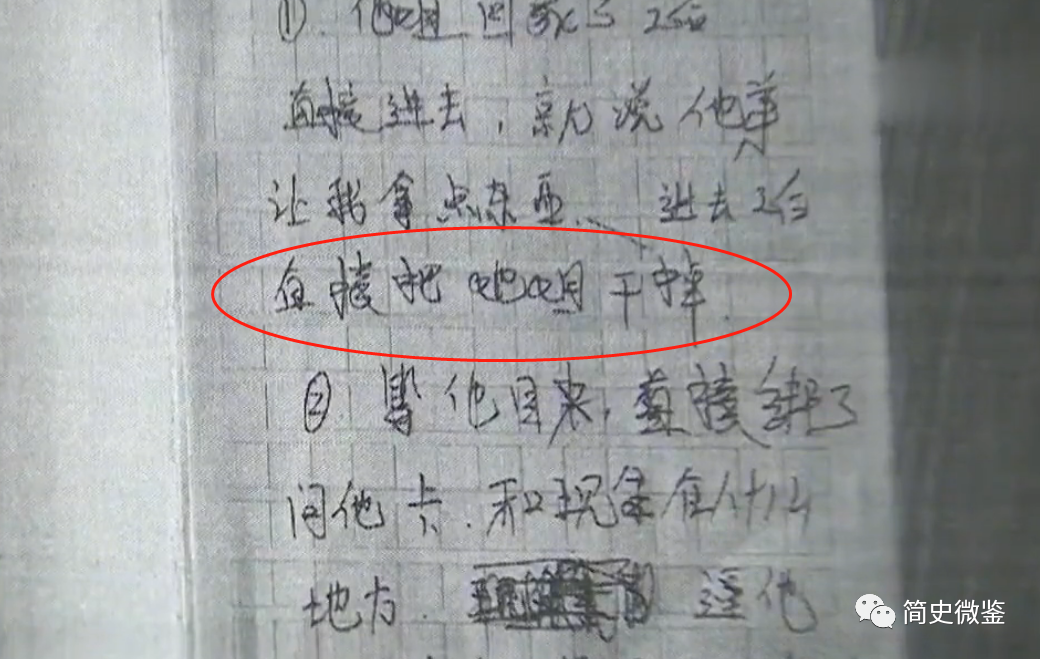 ①. 他 回家了之后
直接进去，就说他
让我拿点东西... 进去之后
直接把 干掉.
②. 等他回来，直接绑了
问他卡.和现金在什么
地方. 逼他
简史微鉴